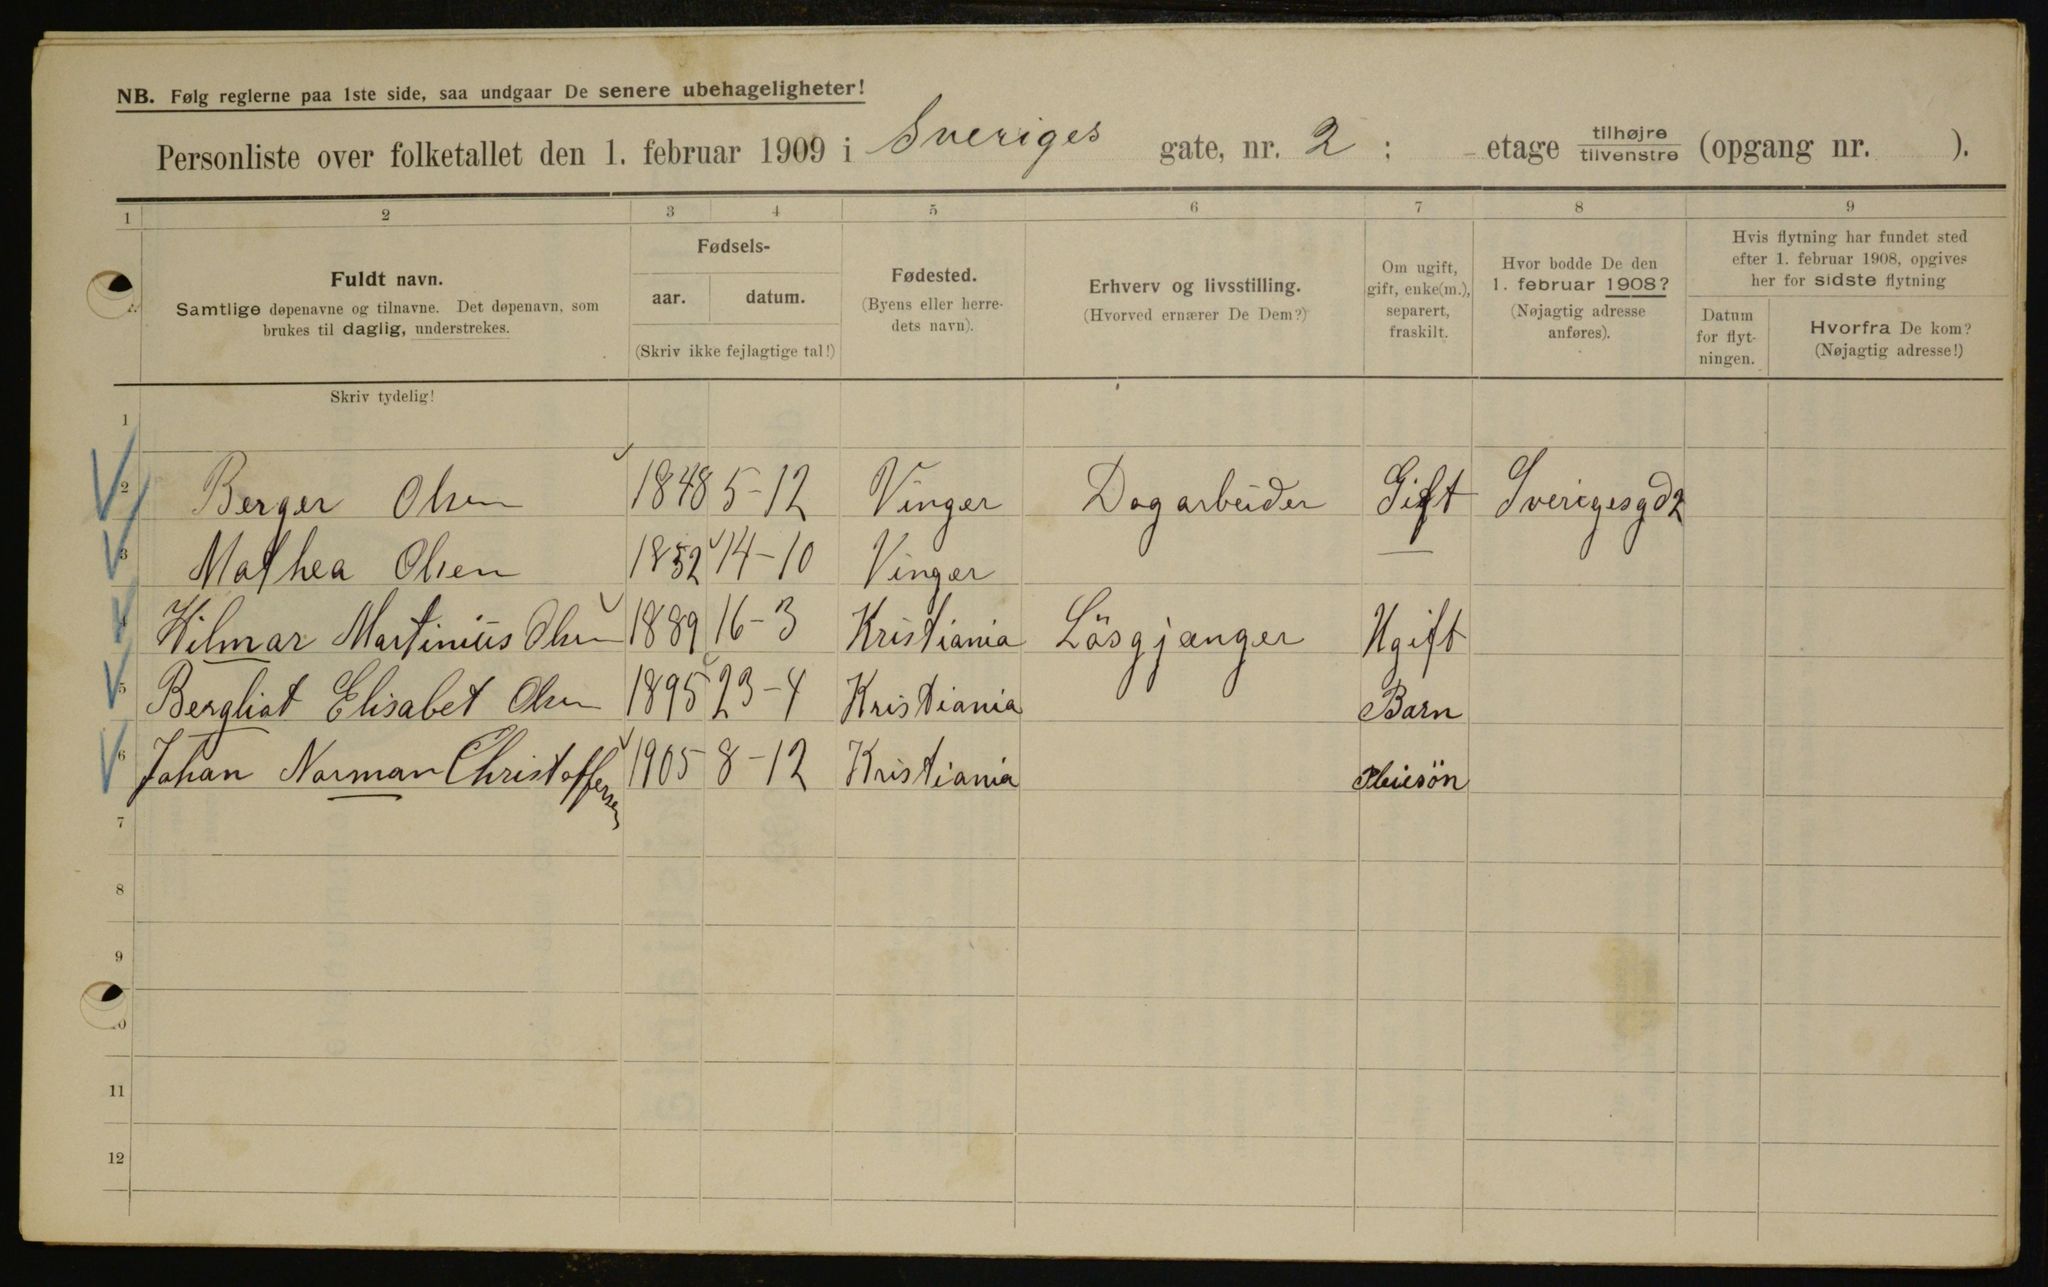 NB. Følg reglerne paa 1ste side, saa undgaar De senere ubehageligheter!
Personliste over folketallet den 1. februar 1909 i Sveriges gate, nr. 2 ; etage tilhøjre/tilvenstre (opgang nr. ).
1 2 3 4 5 6 7 8 9
Fuldt navn.
Samtlige døpenavne og tilnavne. Det døpenavn, som
brukes til daglig, understrekes.
Fødsels-
aar. datum.
(Skriv ikke fejlagtige tal!)
Fødested.
(Byens eller herre-
dets navn).
Erhverv og livsstilling.
(Hvorved ernærer De Dem?)
Om ugift,
gift, enke(m.),
separert,
fraskilt.
Hvor bodde De den
1. februar 1908?
(Nøjagtig adresse
anføres).
Hvis flytning har fundet sted
efter 1. februar 1908, opgives
her for sidste flytning
Datum
for flyt-
ningen.
Hvorfra De kom?
(Nøjagtig adresse!)
Skriv tydelig!
1
2 Berger Olsen 1848 5-12 Vinger Dagarbeider Gift Sverigesgd 2
3 Mathea Olsen 1852 14-10 Vinger —
4 Hilmar Martinius Olsen 1889 16-3 Kristiania Løsgjænger Ugift
5 Bergliot Elisabet Olsen 1895 23-4 Kristiania Barn
6 Johan Norman Christoffersen 1905 8-12 Kristiania Pleiesön
7
8
9
10
11
12